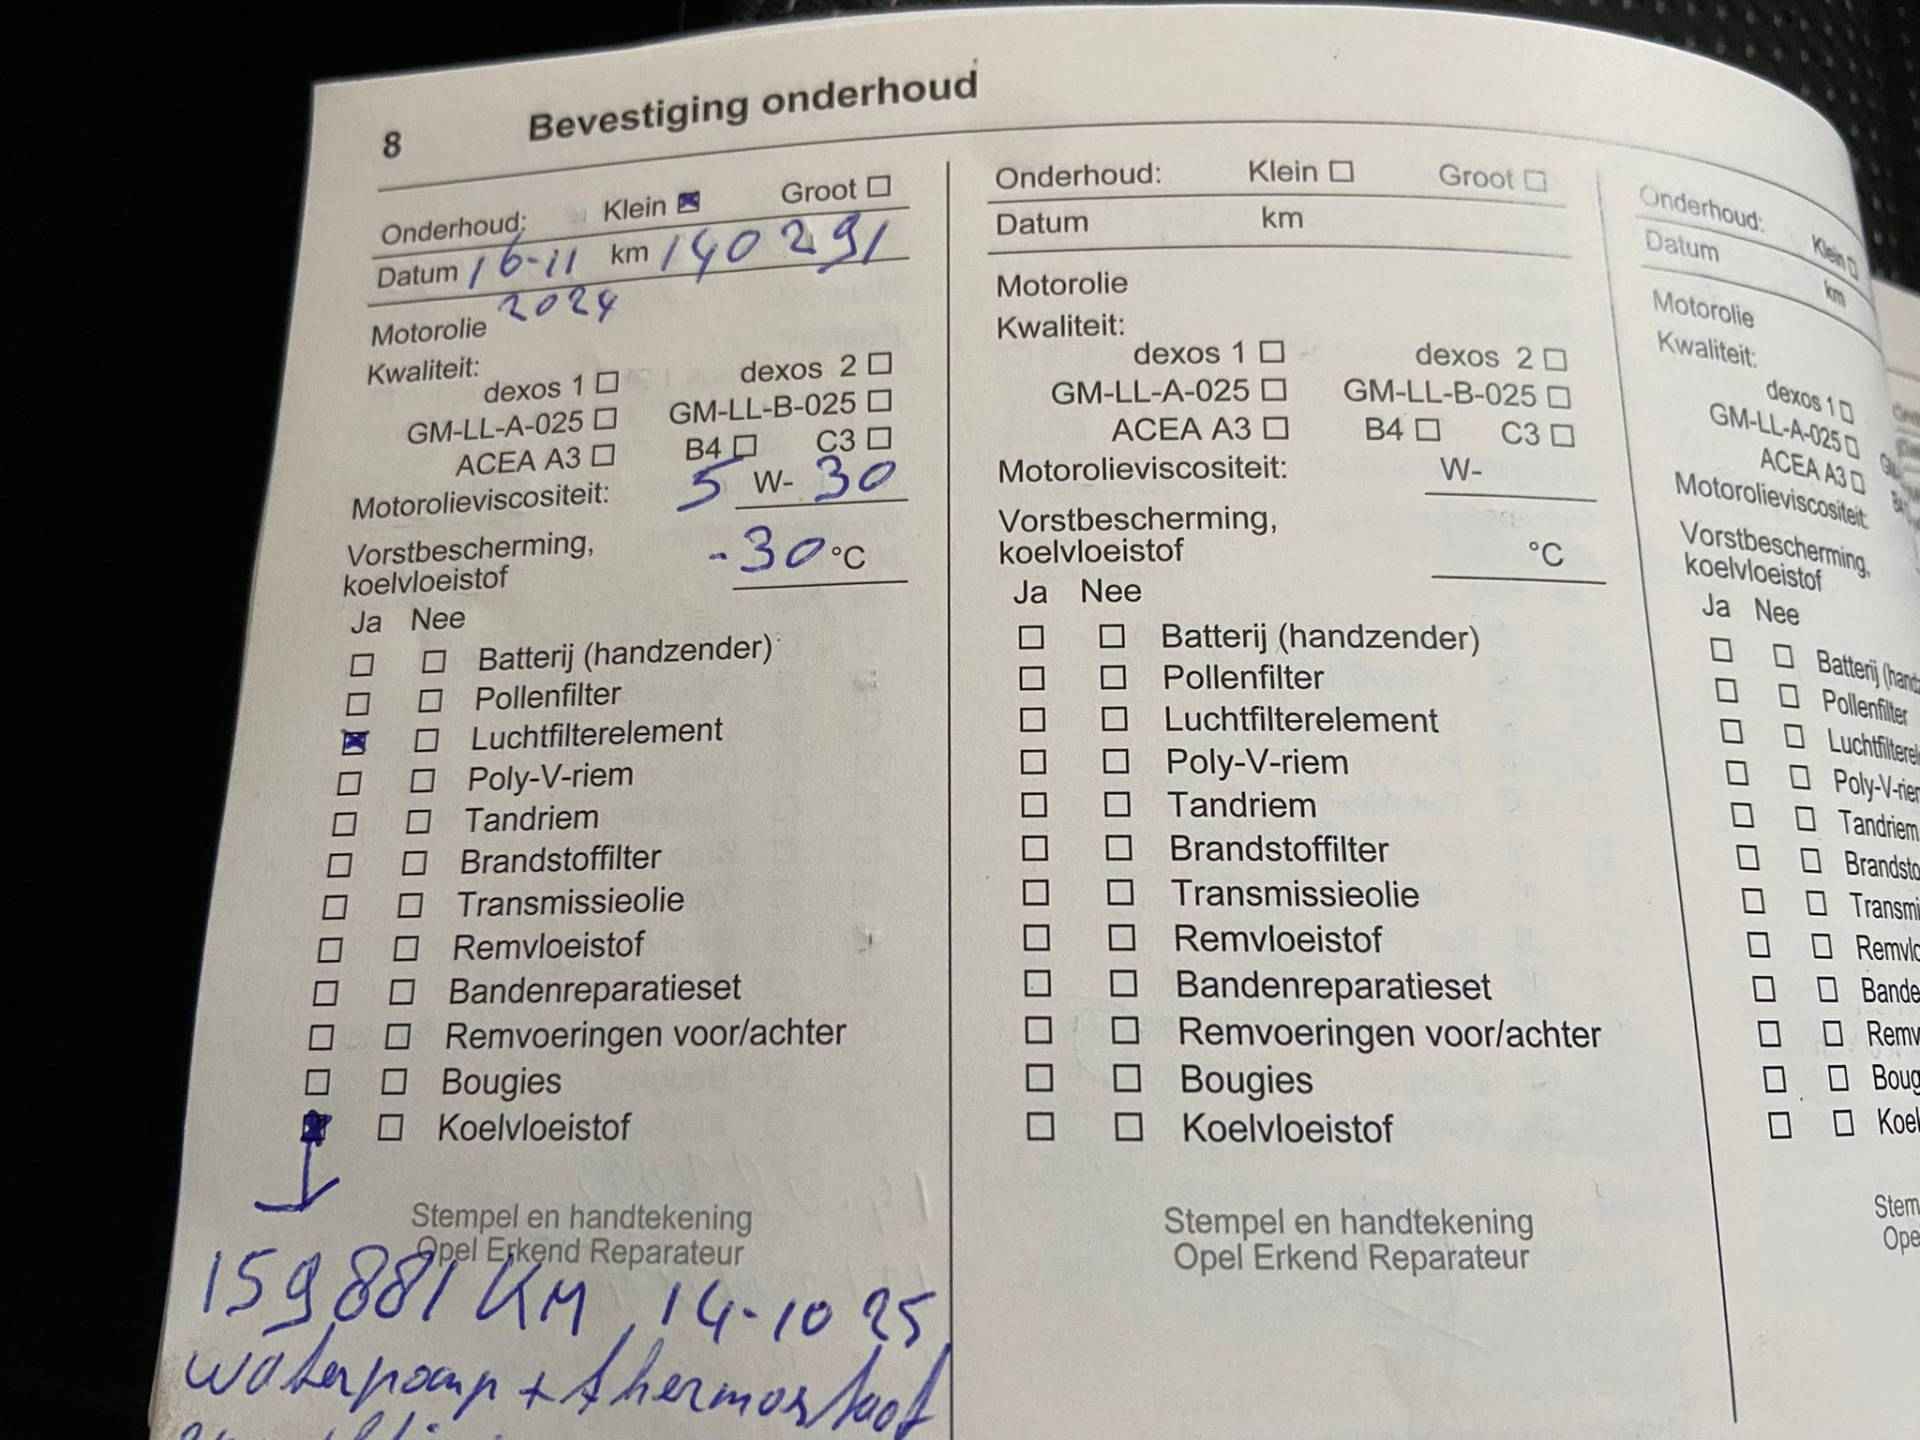 8 Bevestiging onderhoud
Onderhoud: Klein Groot
Datum 16-11 km 140 291
2024
Motorolie
Kwaliteit:
dexos 1 dexos 2
GM-LL-A-025 GM-LL-B-025
ACEA A3 B4 C3
Motorolieviscositeit: 5 W- 30
Vorstbescherming,
koelvloeistof -30 °C
Ja Nee
Batterij (handzender)
Pollenfilter
Luchtfilterelement
Poly-V-riem
Tandriem
Brandstoffilter
Transmissieolie
Remvloeistof
Bandenreparatieset
Remvoeringen voor/achter
Bougies
Koelvloeistof
Stempel en handtekening
Opel Erkend Reparateur
159881 KM 14-10 25
waterpomp + thermostaat
Onderhoud: Klein Groot
Datum km
Motorolie
Kwaliteit:
dexos 1 dexos 2
GM-LL-A-025 GM-LL-B-025
ACEA A3 B4 C3
Motorolieviscositeit: W-
Vorstbescherming,
koelvloeistof °C
Ja Nee
Batterij (handzender)
Pollenfilter
Luchtfilterelement
Poly-V-riem
Tandriem
Brandstoffilter
Transmissieolie
Remvloeistof
Bandenreparatieset
Remvoeringen voor/achter
Bougies
Koelvloeistof
Stempel en handtekening
Opel Erkend Reparateur
Onderhoud: Klein
Datum km
Motorolie
Kwaliteit:
dexos 1
GM-LL-A-025
ACEA A3
Motorolieviscositeit:
Vorstbescherming,
koelvloeistof
Ja Nee
Batterij (hand
Pollenfilter
Luchtfilterel
Poly-V-rie
Tandriem
Brandsto
Transmi
Remvlo
Bande
Remv
Boug
Koel
Stem
Ope